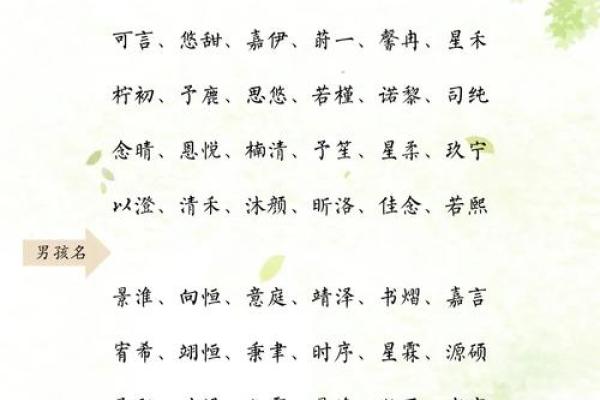 可言、悠甜、嘉伊、莳一、馨冉、星禾
柠初、予鹿、思悠、若槿、诺黎、司纯
念晴、恩悦、楠清、予笙、星柔、玖宁
以澄、清禾、沐颜、昕洛、佳念、若熙
男孩名
景淮、向恒、意庭、靖泽、书熠、嘉言
宥希、翊恒、秉聿、时序、星霖、源硕